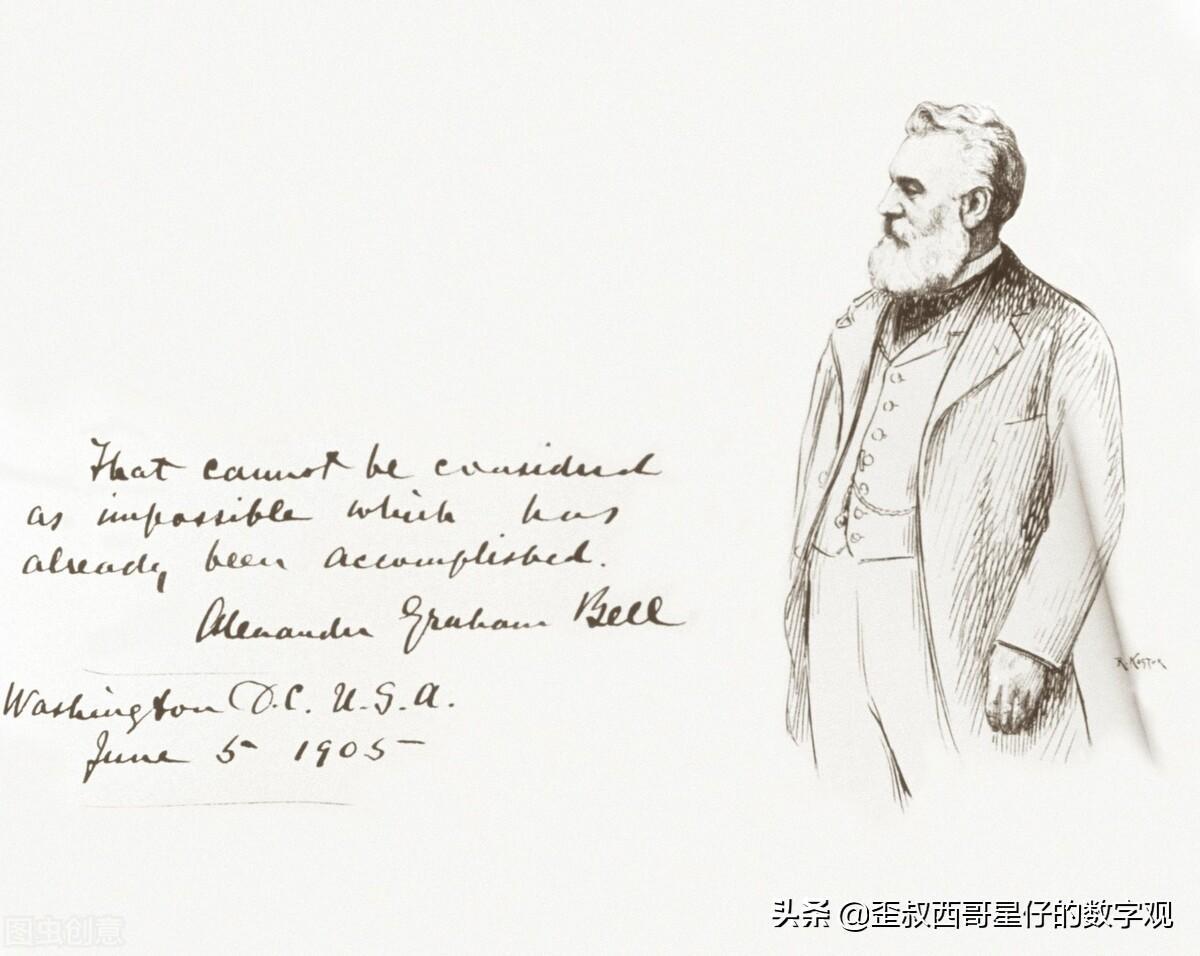 That cannot be considered
as impossible which has
already been accomplished.
Alexander Graham Bell
Washington D.C. U.S.A.
June 5 1905
R. KASTOR
图虫创意
头条 @歪叔西哥星仔的数字观